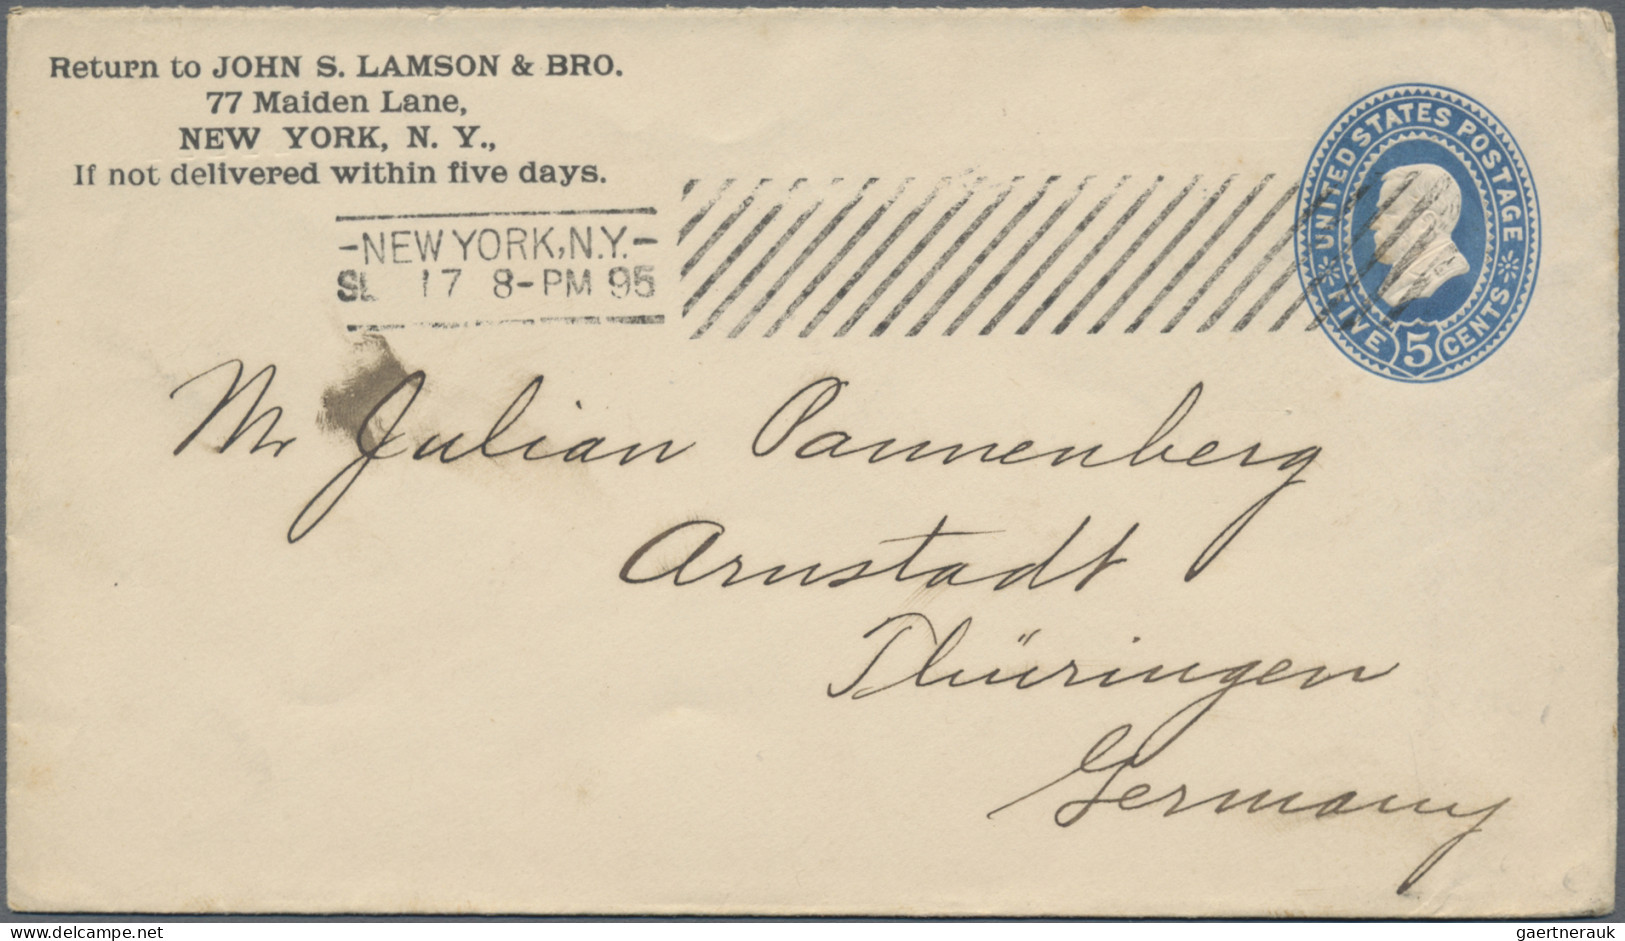 Return to JOHN S. LAMSON & BRO.
77 Maiden Lane,
NEW YORK, N. Y.,
If not delivered within five days.
-NEW YORK, N.Y.-
17 8-PM 95
UNITED STATES POSTAGE
FIVE 5 CENTS
Mr Julian Pannenberg
Arnstadt
Thüringen
Germany
delcampe.net
gaertnerauk